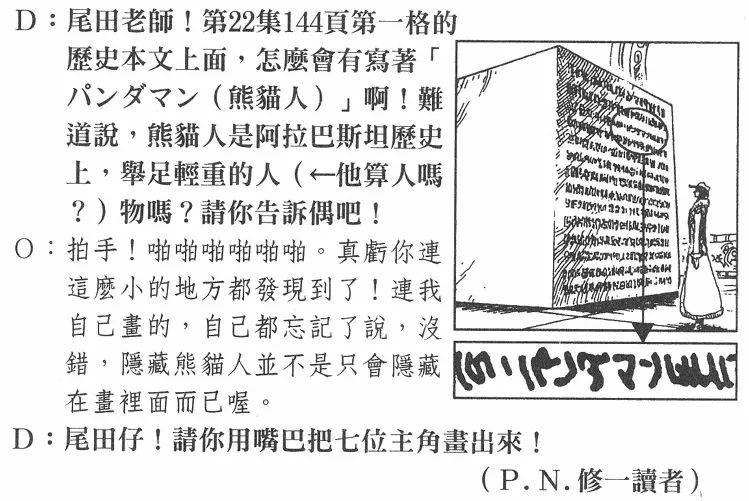 D：尾田老師！第22集144頁第一格的
歷史本文上面，怎麼會有寫著「
パンダマン（熊貓人）」啊！難
道說，熊貓人是阿拉巴斯坦歷史
上，舉足輕重的人（←他算人嗎
？）物嗎？請你告訴偶吧！
O：拍手！啪啪啪啪啪啪。真虧你連
這麼小的地方都發現到了！連我
自己畫的，自己都忘記了說，沒
錯，隱藏熊貓人並不是只會隱藏
在畫裡面而已喔。
パンダマン
D：尾田仔！請你用嘴巴把七位主角畫出來！
（P.N.修一讀者）